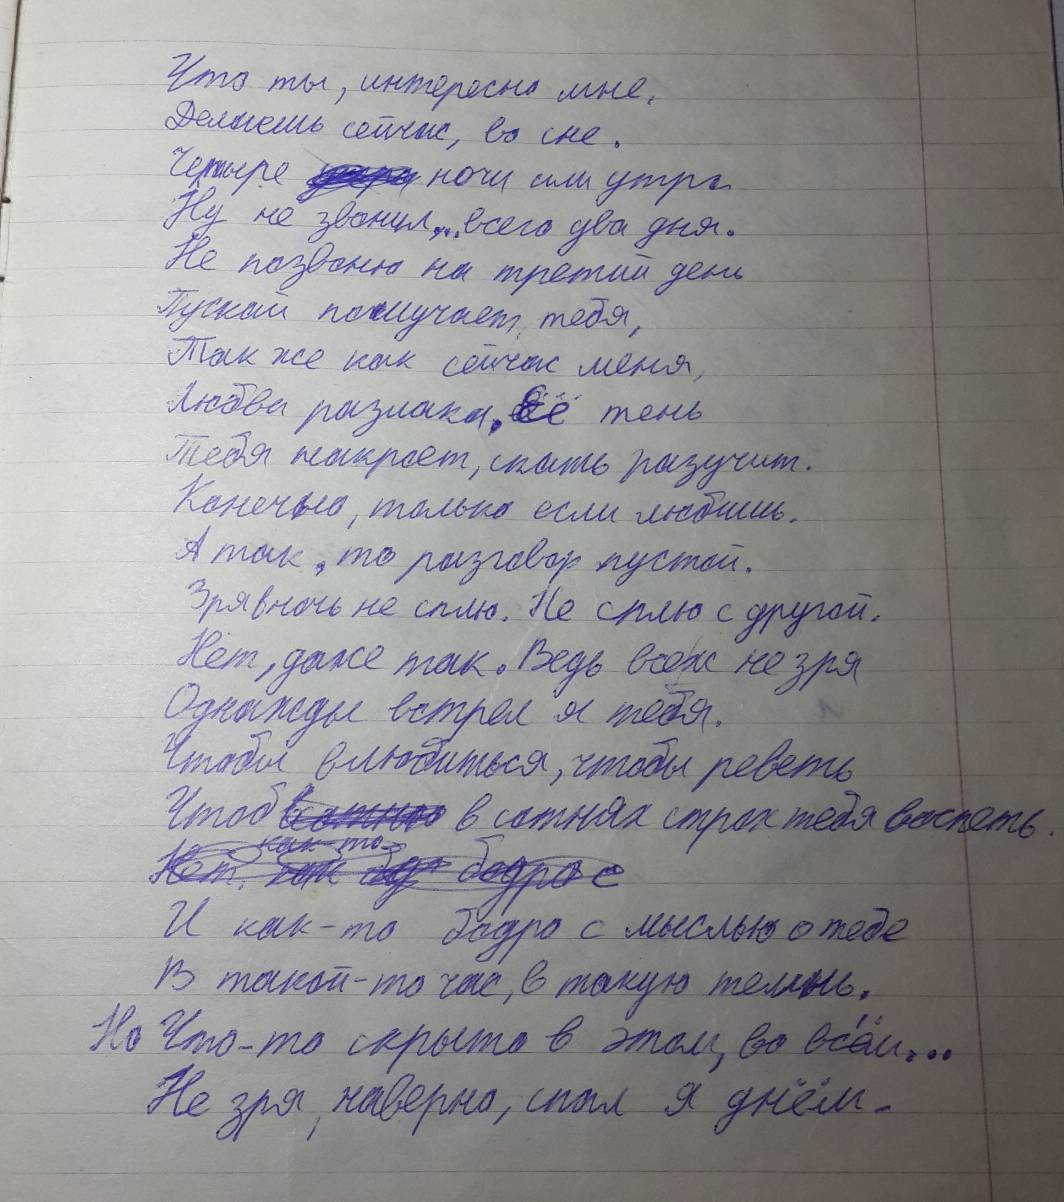 Что ты, интересно мне,
Делаешь сейчас, во сне.
Четыре ночи или утра
Ну не звонил... всего два дня.
Не позвоню на третий день
Пускай помучает тебя,
Так же как сейчас меня,
Любви разлака, её тень
Тебя накроет, спать разучит.
Конечно, только если любишь.
А так, то разговор пустой.
Зря в ночь не сплю. Не сплю с другой.
Нет, даже так. Ведь всёж не зря
Однажды встрел я тебя.
Чтобы влюбиться, чтобы реветь
Чтоб в сотнях строк тебя воспеть.
И как-то бодро с мыслью о тебе
В такой-то час, в такую темнь.
Но Что-то скрыто в этом, во всём...
Не зря, наверно, спал я днём.